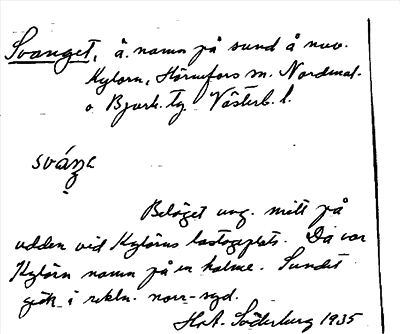 Svanget, ä. namn på sund å nuv.
Kylörn, Hörnefors sn. Nordmal.
o. Bjurh. tg. Västerb. l.
sváŋɛ
Beläget ung. mitt på
udden vid Kylörns lastageplats. Då var
Kylörn namn på en holme. Sundet
gick i riktn. norr-syd.
H.A. Söderberg 1935